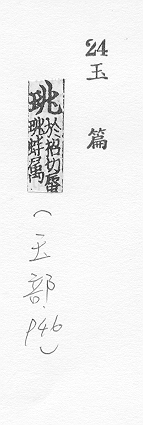 24
玉篇
珧於招切蜃
珧蚌属
(玉部.P46)